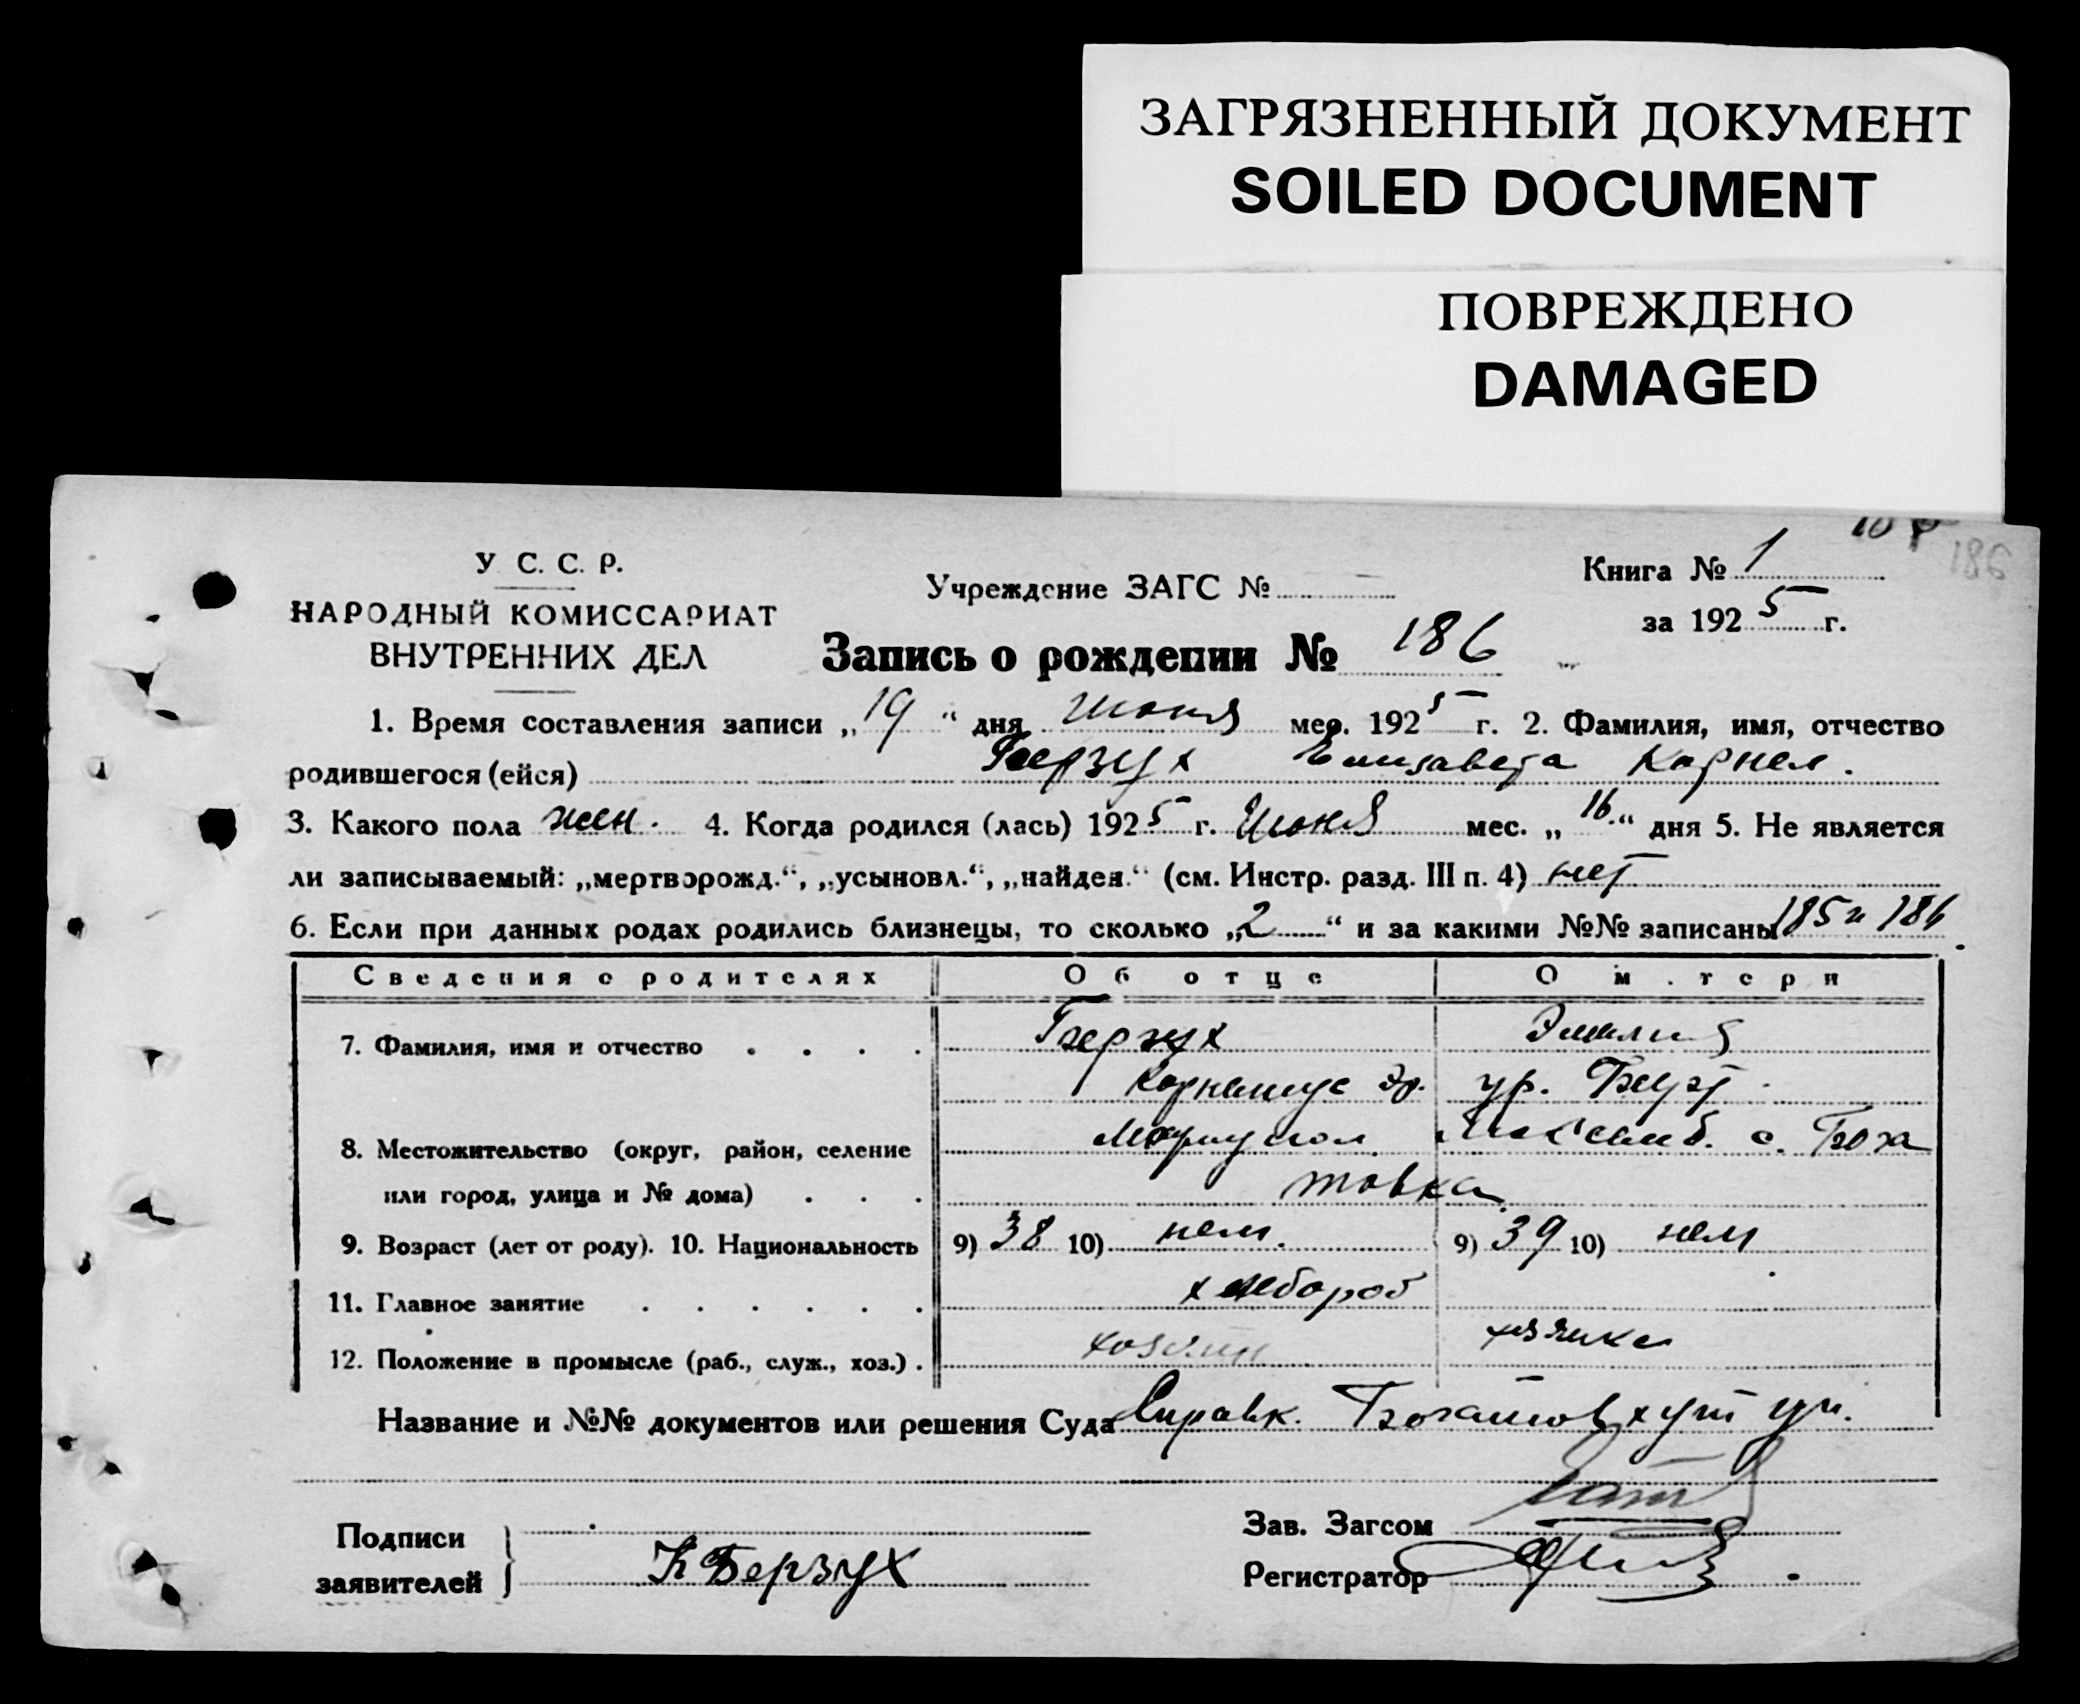 ЗАГРЯЗНЕННЫЙ ДОКУМЕНТ
SOILED DOCUMENT
ПОВРЕЖДЕНО
DAMAGED
186
У. С. С. Р.
НАРОДНЫЙ КОМИССАРИАТ
ВНУТРЕННИХ ДЕЛ
Учреждение ЗАГС №
Книга № 1
за 1925 г.
Запись о рождении № 186
1. Время составления записи „19“ дня Июня мес. 1925 г. 2. Фамилия, имя, отчество
родившегося (ейся) Берзух Елизавета Корнел.
3. Какого пола жен. 4. Когда родился (лась) 1925 г. Июня мес. „16.“ дня 5. Не является
ли записываемый: „мертворожд.“, „усыновл.“, „найден.“ (см. Инстр. разд. III п. 4) нет
6. Если при данных родах родились близнецы, то сколько „2“ и за какими №№ записаны 185 и 186
Сведения о родителях Об отце О матери
7. Фамилия, имя и отчество . . . . Берзух Эмилия
Корнелиус Эр. ур.
8. Местожительство (округ, район, селение Мариупол. с. Бога
или город, улица и № дома) . . . товка
9. Возраст (лет от роду). 10. Национальность 9) 38 10) нем. 9) 39 10) нем
11. Главное занятие . . . . . . хлебороб
12. Положение в промысле (раб., служ., хоз.) . хозяин хозяйка
Название и №№ документов или решения Суда Справк. Богатов
Подписи
заявителей } К Берзух
Зав. Загсом
Регистратор